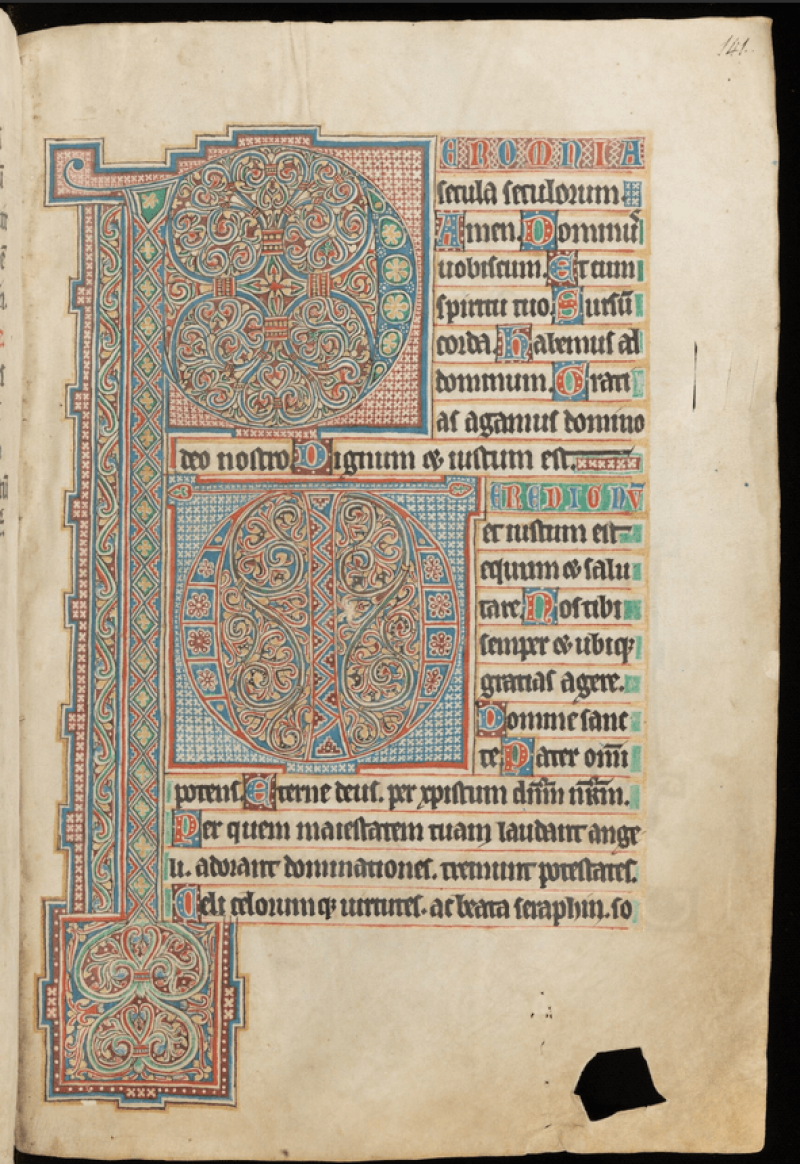 141.
PEROMNIA
secula seculorum
Amen. Dominuſ
uobiſcum. Et cum
ſpiritu tuo. Surſū
corda. Habemuſ ad
dominum. Grati
aſ agamuſ domino
deo noſtro. Dignum & iuſtum eſt.
VEREDIGNV
et iuſtum eſt
equum & ſalu
tare, Noſ tibi
ſemper & ubiq;
gratiaſ agere.
Domine ſanc
te Pater omī
potenſ. Eterne deuſ. per xpiſtum dn̄m nr̄m.
Per quem maieſtatem tuam laudant ange
li. adorant dominationeſ. tremunt poteſtateſ.
Celi celorumq; uirtuteſ. ac beata ſeraphin. ſo